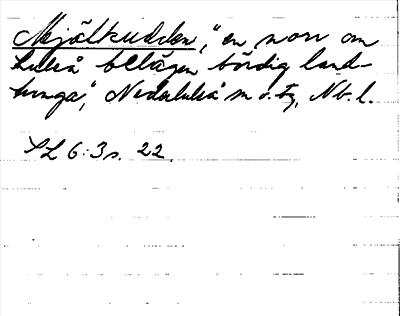 Mjölkudden, "en norr om
Luleå belägen bördig land-
tunga", Nederluleå sn o. tg, Nb. l.
SL 6:3 s. 22.